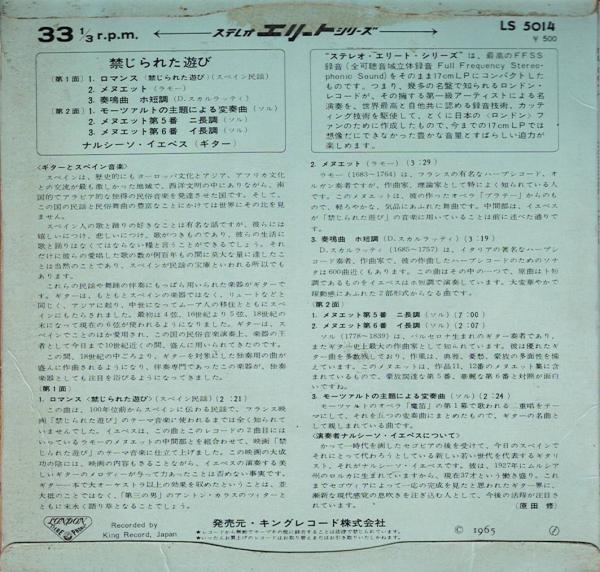 33 1/3 r.p.m.
ステレオ エリート シリーズ
LS 5014
¥ 500
禁じられた遊び
(第1面) 1. ロマンス〈禁じられた遊び〉(スペイン民謡)
2. メヌエット (ラモー)
3. 奏鳴曲 ホ短調 (D.スカルラッティ)
(第2面) 1. モーツァルトの主題による変奏曲 (ソル)
2. メヌエット第5番 ニ長調 (ソル)
3. メヌエット第6番 イ長調 (ソル)
ナルシーソ・イエペス (ギター)
"ステレオ・エリート・シリーズ"は、最高のFFSS
録音(全可聴音域立体録音 Full Frequency Stereo-
phonic Sound)をそのまま17cmLPにコンパクトした
ものです。つまり、幾多の名盤で知られるロンドン・
レコードが、その擁する第一級アーティストによる名
演奏を、世界最高と自他共に認める録音技術、カッティ
ング技術を駆使して、とくに日本の〈ロンドン〉フ
ァンのために作成したもので、今までの17cmLPでは
想像だにできなかった豊かな音量とすばらしい迫力が
楽しめます。
〈ギターとスペイン音楽〉
スペインは、歴史的にもヨーロッパ文化とアジア、アフリカ文化
との交流が最も激しかった地域で、西洋文明の中にありながら、南
国的でアラビア的な独得の民俗音楽を発達させた国です。そして、
この国の民謡と民俗舞曲の豊富なことにかけては世界にその比を見
ません。
スペイン人の歌と踊りの好きなことは有名な話ですが、彼らには
嬉しいにつけ、悲しいにつけ、歌がつきものであり、彼らの生活に
歌と踊りはなくてはならない糧と言うことができるでしょう。それ
だけに彼らの愛唱した歌の数が何百年もの間に莫大な量に達したこ
とは当然のことであり、スペインが民謡の宝庫といわれる所以でも
あります。
これらの民謡や舞踊の伴奏にもっぱら用いられた楽器がギターで
す。ギターは、もともとスペインの楽器ではなく、リュートなどと
同じく、アジアに起り、中世になってムーア人の移住とともにスペ
インにもたらされました。最初は4弦、16世紀より5弦、18世紀の
末になって現在の6弦が使われるようになりました。ギターは、ス
ペインでことのほか愛用され、この国の民俗音楽演奏上、楽器の王
者として今日まで10世紀近くの間、盛んに用いられてきたのです。
この間、18世紀の中ごろより、ギターを対象にした独奏用の曲が
盛んに作曲されるようになり、伴奏専門であったこの楽器が、独奏
楽器としても注目を浴びるようになってきました。
(第1面)
1. ロマンス〈禁じられた遊び〉(スペイン民謡) (2:21)
この曲は、100年位前からスペインに伝わる民謡で、フランス映
画「禁じられた遊び」のテーマ音楽に使われるまでは全く知られて
いませんでした。イエペスは、この曲とこのレコードの2曲目には
いっているラモーのメヌエットの中間部とを組合わせて、映画「禁
じられた遊び」のテーマ音楽に仕立て上げました。この映画の大成
功の陰には、映画の内容もさることながら、イエペスの演奏する美
しいギターのメロディーが与って力あったことは否めない事実です。
ギター一本で大オーケストラ以上の効果を収めたということは、並
大抵のことではなく、「第三の男」のアントン・カラスのツィターと
ともに末永く語り草となることでしょう。
2. メヌエット(ラモー) (3:29)
ラモー(1683~1764)は、フランスの有名なハープシコード、オ
ルガン奏者ですが、作曲家、理論家として特によく知られている人
です。このメヌエットは、彼の作ったオペラ「プラテー」からのもの
で、軽ろやかな、気品にあふれた舞曲です。中間部は、イエペス
が「禁じられた遊び」の音楽に用いていることは前に述べた通りで
す。
3. 奏鳴曲 ホ短調 (D.スカルラッティ) (3:19)
D.スカルラッティ(1685~1757)は、イタリアの著名なハープシ
コード奏者、作曲家で、彼の作曲したハープシコードのためのソナ
タは600曲近くもあります。この曲はその中の一つで、原曲はト短
調であるものをイエペスはホ短調で演奏しています。大変華やかで
躍動感にあふれた2部形式からなる曲です。
(第2面)
1. メヌエット第5番 ニ長調 (ソル) (2:00)
2. メヌエット第6番 イ長調 (ソル) (2:07)
ソル(1778~1839)は、バルセロナ生まれのギター奏者であり、
またギター史上最大の作曲家として知られています。彼は優れたギ
ター曲を多数残しており、作風は、典雅、憂愁、豪放の多面性を備
えています。このメヌエットは、作品11、12番のメヌエット集に含
まれているもので、豪放闊達な第5番、華麗な第6番と対照が面白
いですね。
3. モーツァルトの主題による変奏曲 (ソル) (2:24)
モーツァルトのオペラ「魔笛」の第1幕で歌われる二重唱をテー
マにして、それを五つの変奏曲にまとめたもので、ギターの名曲と
して親しまれている曲です。
〈演奏者ナルシーソ・イエペスについて〉
かって一時代を画したセゴビアの後を受けて、今日のスペインで
それにとって代わろうとしている新しい若い世代を代表するギタリ
スト、それがナルシーソ・イエペスです。彼は、1927年にムルシア
州のロルカに生まれていますから、現在37才という働き盛り。これ
までセゴビアによって一応の完成を見たと思われたギター界に、
漸新な現代感覚の息吹きを注ぎ込む人として、今後の活躍が注目さ
れています。 (原田 修)
LONDON
Recorded by
King Record, Japan
発売元・キングレコード株式会社
★レコードから無断でテープその他に録音することは法律で禁じられています。
★いったんお買上げのレコードはお取り替えまたはお引き取りいたしかねます。
© 1965